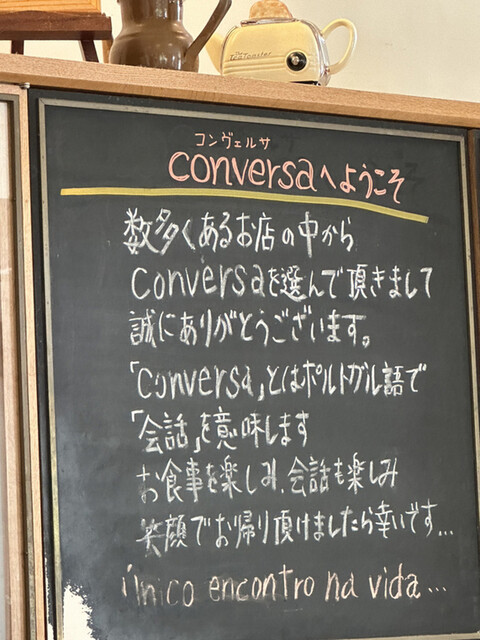 The TeaToaster
コンヴェルサ
conversaへようこそ
数多くあるお店の中から
conversaを選んで頂きまして
誠にありがとうございます。
「conversa」とはポルトガル語で
「会話」を意味します
お食事を楽しみ、会話も楽しみ
笑顔でお帰り頂けましたら幸いです...
Único encontro na vida...